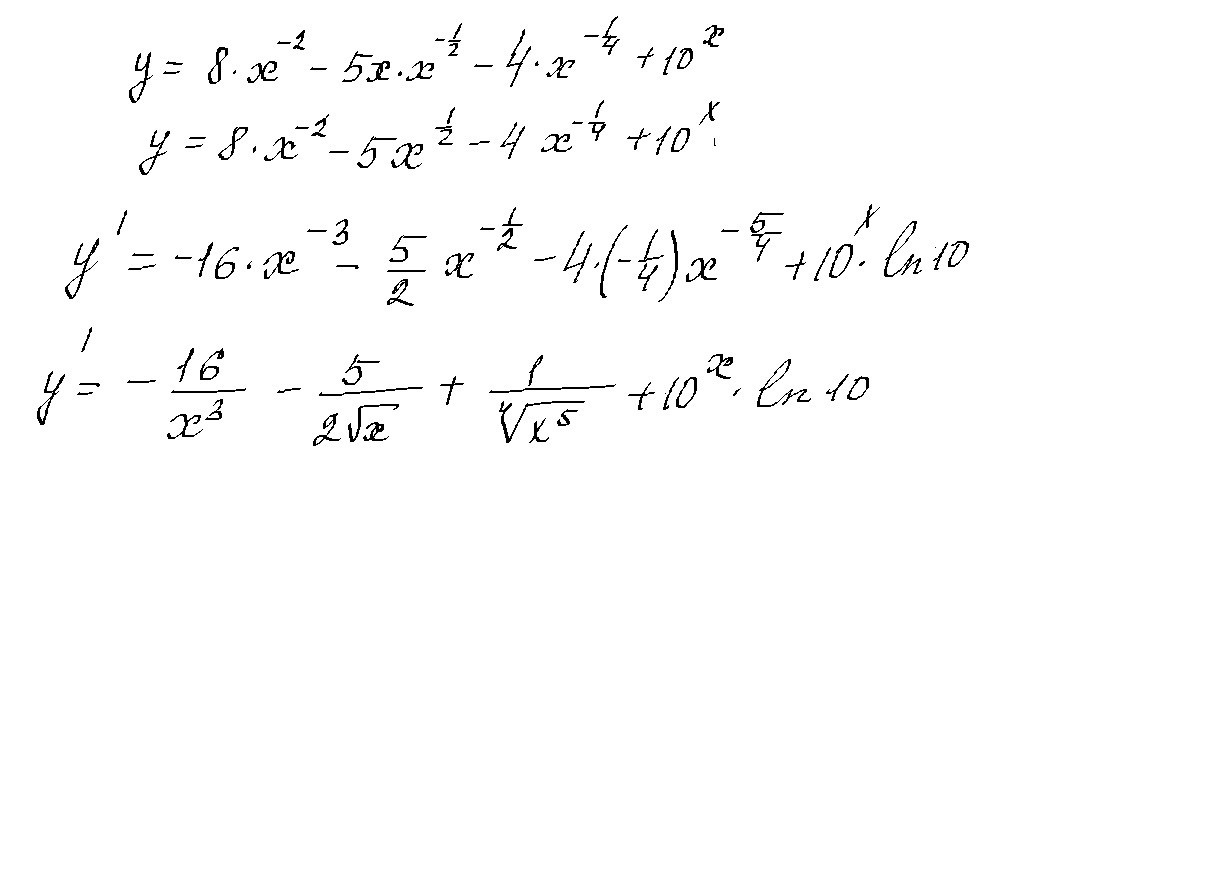 y = 8·x^{-2} - 5x·x^{-1/2} - 4·x^{-1/4} + 10^x
y = 8·x^{-2} - 5x^{1/2} - 4x^{-1/4} + 10^x
y' = -16·x^{-3} - 5/2 x^{-1/2} - 4·(-1/4)x^{-5/4} + 10^x·ln 10
y' = -16/x^3 - 5/(2√x) + 1/∜(x^5) + 10^x·ln 10